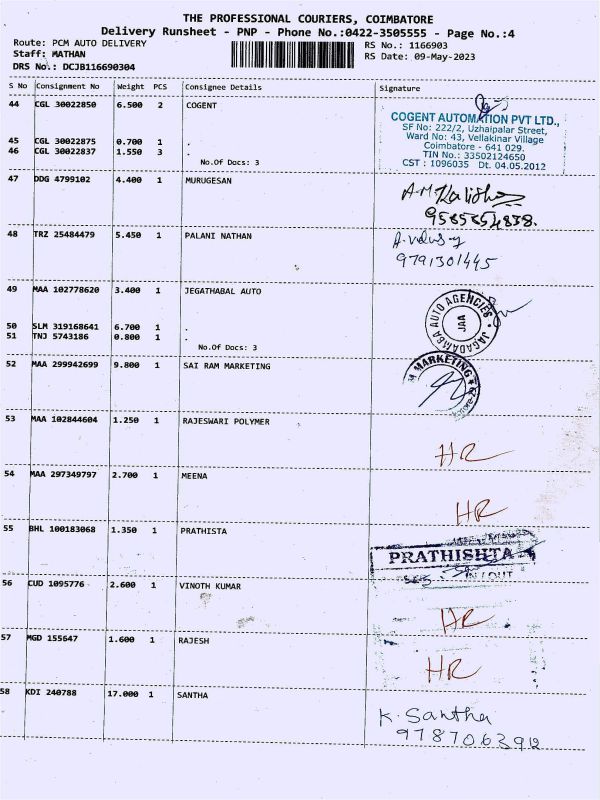 THE PROFESSIONAL COURIERS, COIMBATORE
Delivery Runsheet - PNP - Phone No.:0422-3505555 - Page No.:4
Route: PCM AUTO DELIVERY
RS No.: 1166903
Staff: MATHAN
RS Date: 09-May-2023
DRS No.: DCJB116690304
S No Consignment No Weight PCS Consignee Details Signature
44 CGL 30022850 6.500 2 COGENT
45 CGL 30022875 0.700 1 .
46 CGL 30022837 1.550 3 .
No.Of Docs: 3
COGENT AUTOMATION PVT LTD.,
SF No: 222/2, Uzhaipalar Street,
Ward No: 43, Vellakinar Village
Coimbatore - 641 029.
TIN No.: 33502124650
CST : 1096035 Dt. 04.05.2012
47 DDG 4799102 4.400 1 MURUGESAN
48 TRZ 25484479 5.450 1 PALANI NATHAN
9791301445
49 MAA 102778620 3.400 1 JEGATHABAL AUTO
50 SLM 319168641 6.700 1 .
51 TNJ 5743186 0.800 1 .
No.Of Docs: 3
JAGADAMBA AUTO AGENCIES
JAA
52 MAA 299942699 9.800 1 SAI RAM MARKETING
MARKETING
53 MAA 102844604 1.250 1 RAJESWARI POLYMER
HR
54 MAA 297349797 2.700 1 MEENA
HR
55 BHL 100183068 1.350 1 PRATHISTA
PRATHISHTA
IN / OUT
56 CUD 1095776 2.600 1 VINOTH KUMAR
HR
57 MGD 155647 1.600 1 RAJESH
HR
58 KDI 240788 17.000 1 SANTHA
K. Santha
9787063912